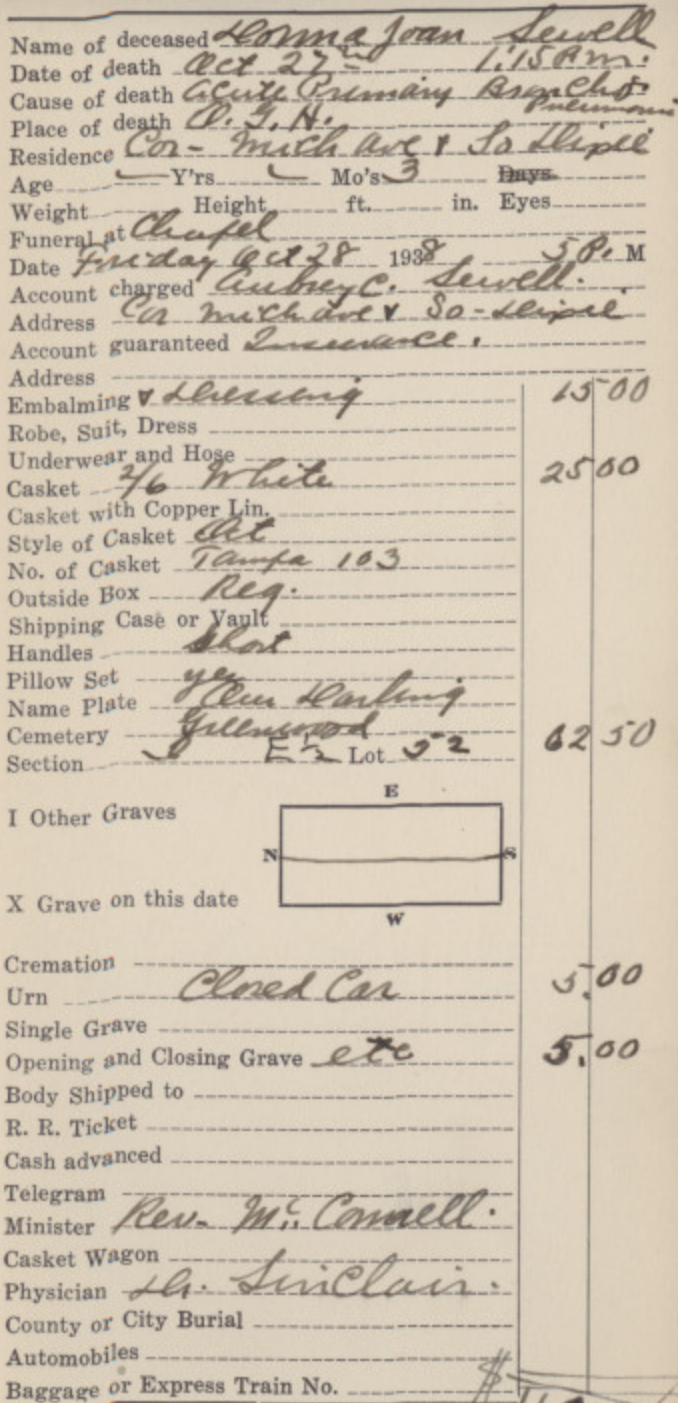 Name of deceased Donna Joan Sewell
Date of death Oct 27th 1:15 P.m.
Cause of death Acute Primary Broncho Pneumonia
Place of death O. G. H.
Residence Cor- Mich Ave & So Dixie
Age Y'rs. Mo's 3 Days
Weight Height ft. in. Eyes
Funeral at Chapel
Date Friday Oct 28 1938 5 P. M
Account charged Aubrey C. Sewell.
Address Cor Mich ave & So-Dixie
Account guaranteed Insurance.
Address
Embalming & Dressing 15 00
Robe, Suit, Dress
Underwear and Hose
Casket 2/6 White 25 00
Casket with Copper Lin.
Style of Casket Oct
No. of Casket Tampa 103
Outside Box Reg.
Shipping Case or Vault
Handles Short
Pillow Set yes
Name Plate Our Darling
Cemetery Greenwood 62 50
Section E 1/2 Lot 52
E
I Other Graves
N S
X Grave on this date
W
Cremation
Urn Closed Car 5.00
Single Grave
Opening and Closing Grave etc 5.00
Body Shipped to
R. R. Ticket
Cash advanced
Telegram
Minister Rev. Mc. Connell.
Casket Wagon
Physician Dr. Sinclair.
County or City Burial
Automobiles
Baggage or Express Train No. $